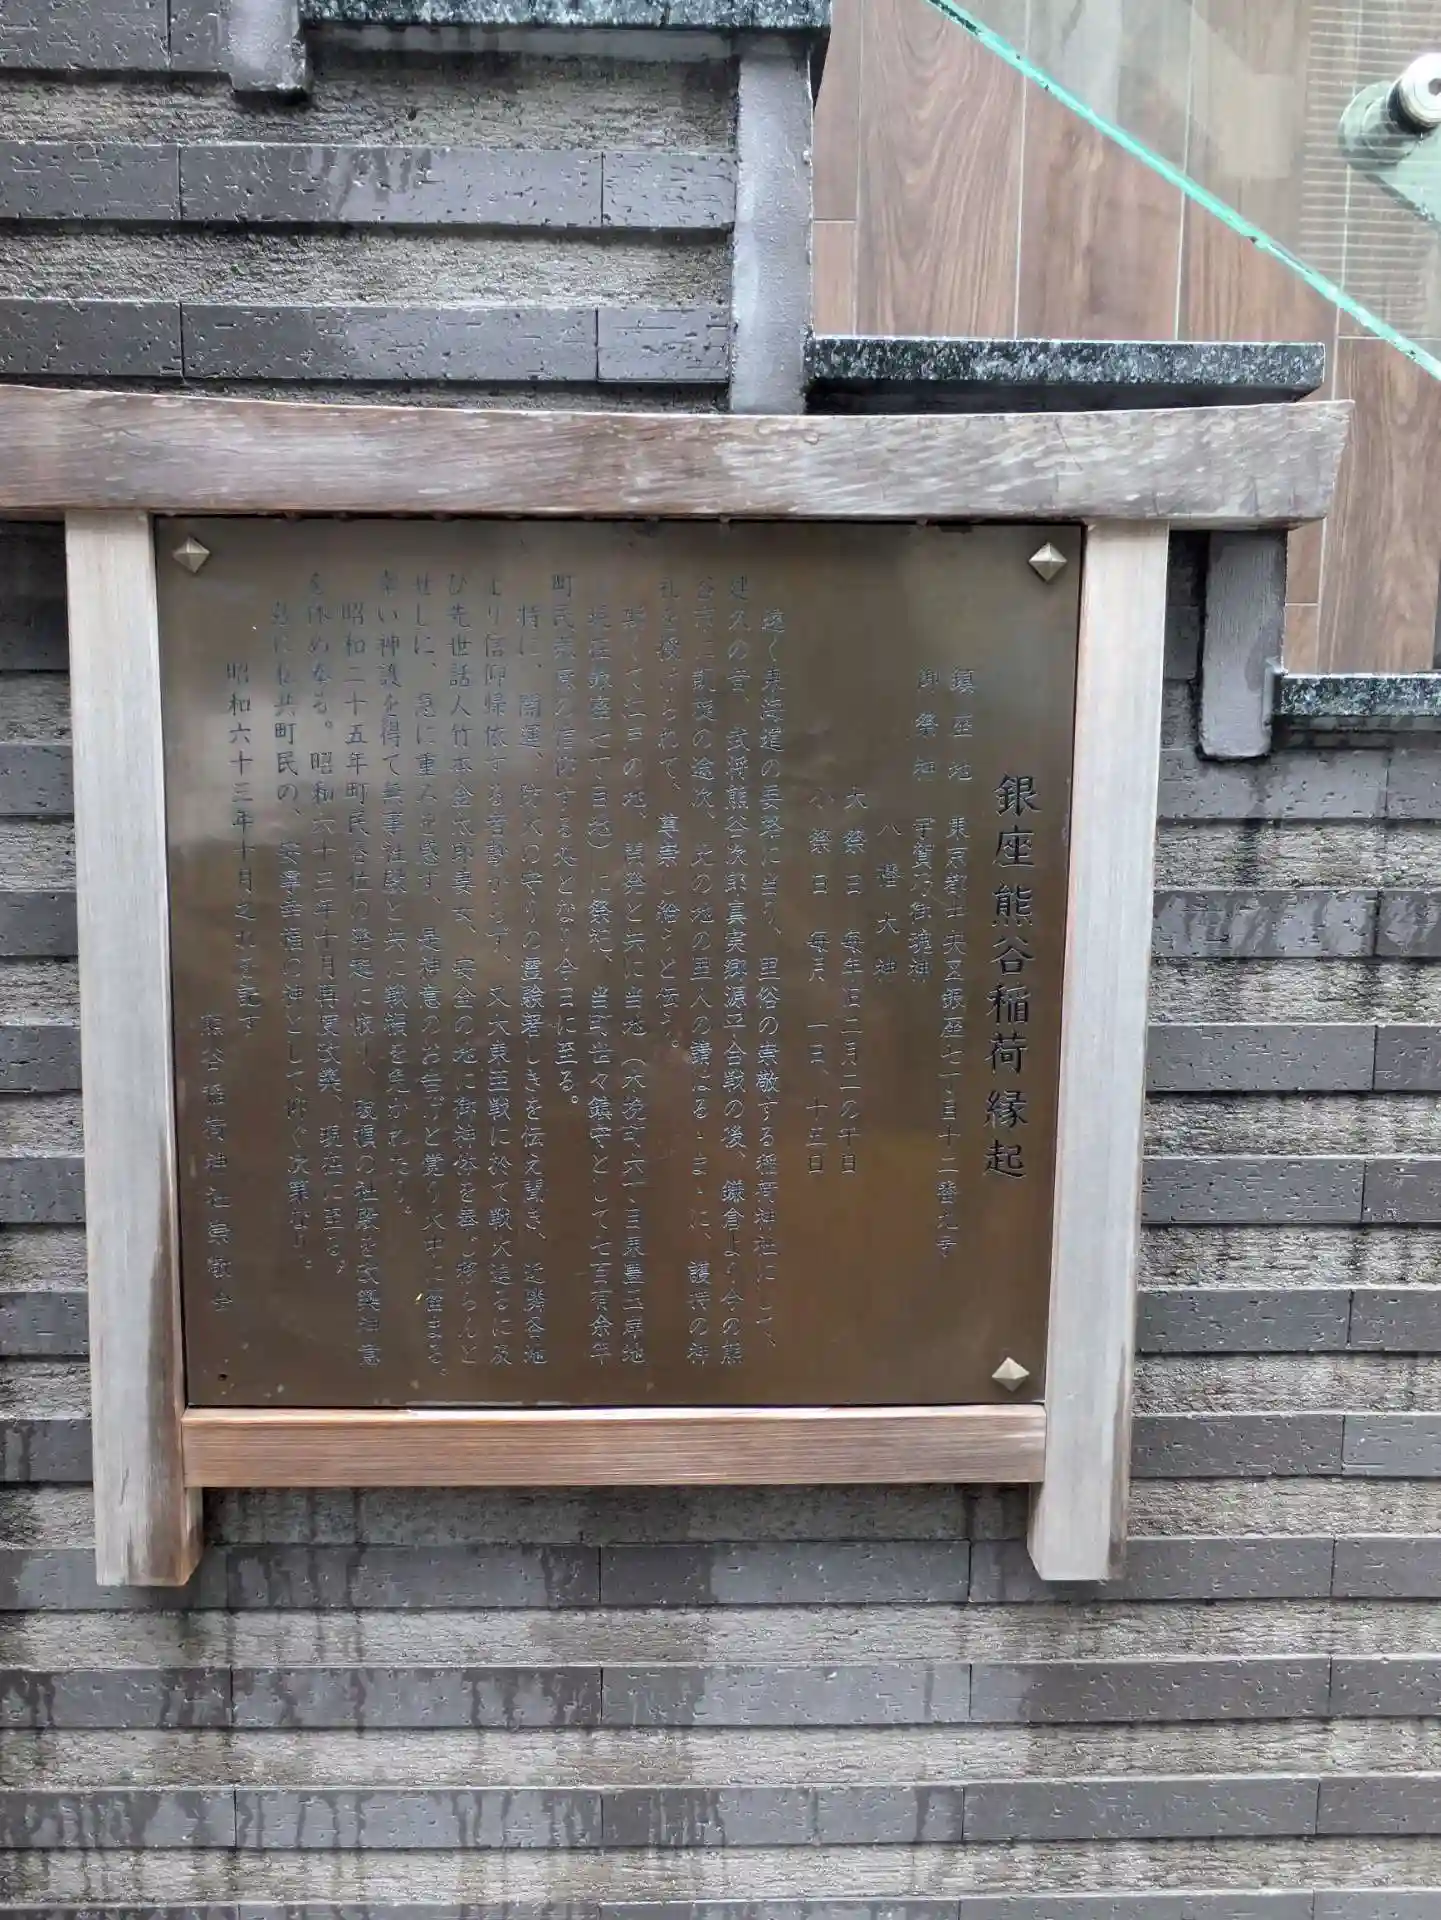 銀座熊谷稲荷縁起
鎮座地 東京都中央区銀座七丁目十二番地号
御祭神 宇賀乃御魂神
八幡大神
大祭日 毎年旧二月二の午日
小祭日 毎月 一日、十五日
遠く東海道の要路に当り、里俗の崇敬する稲荷神社にして、
建久の昔、武将熊谷次郎真実郷源平合戦の後、鎌倉より今の熊
谷市に凱旋の途次、此の地の里人の請はるゝまゝに、護持の神
礼を授けられて、尊崇し給うと伝う。
斯くて江戸の地、開発と共に当地(木挽町六丁目采豊玉岸地
現在銀座七丁目地)に祭祀、当町世々鎮守として七百有余年
町民族原の信仰する処となり今日に至る。
特に、開運、防火の守りの霊験著しきを伝え聞き、近隣各地
より信仰帰依する者尠からず、又大東亜戦に於て戦火迫るに及
び先世話人竹本金太郎妻女、安全の地に御神体を奉じ移らんと
せしに、急に重みを感ず、是神意のお告げと覚り火中に留まる。
幸い神護を得て無事社殿と共に戦禍を免かれたり。
昭和二十五年町民各位の発起に依り、破損の社殿を改築神意
を休めなる。昭和六十三年十月再度改築、現在に至る。
茲に仏共町民の、安寧幸福の神として仰ぐ次第なり。
昭和六十三年十月之れを記す
熊谷稲荷神社崇敬会